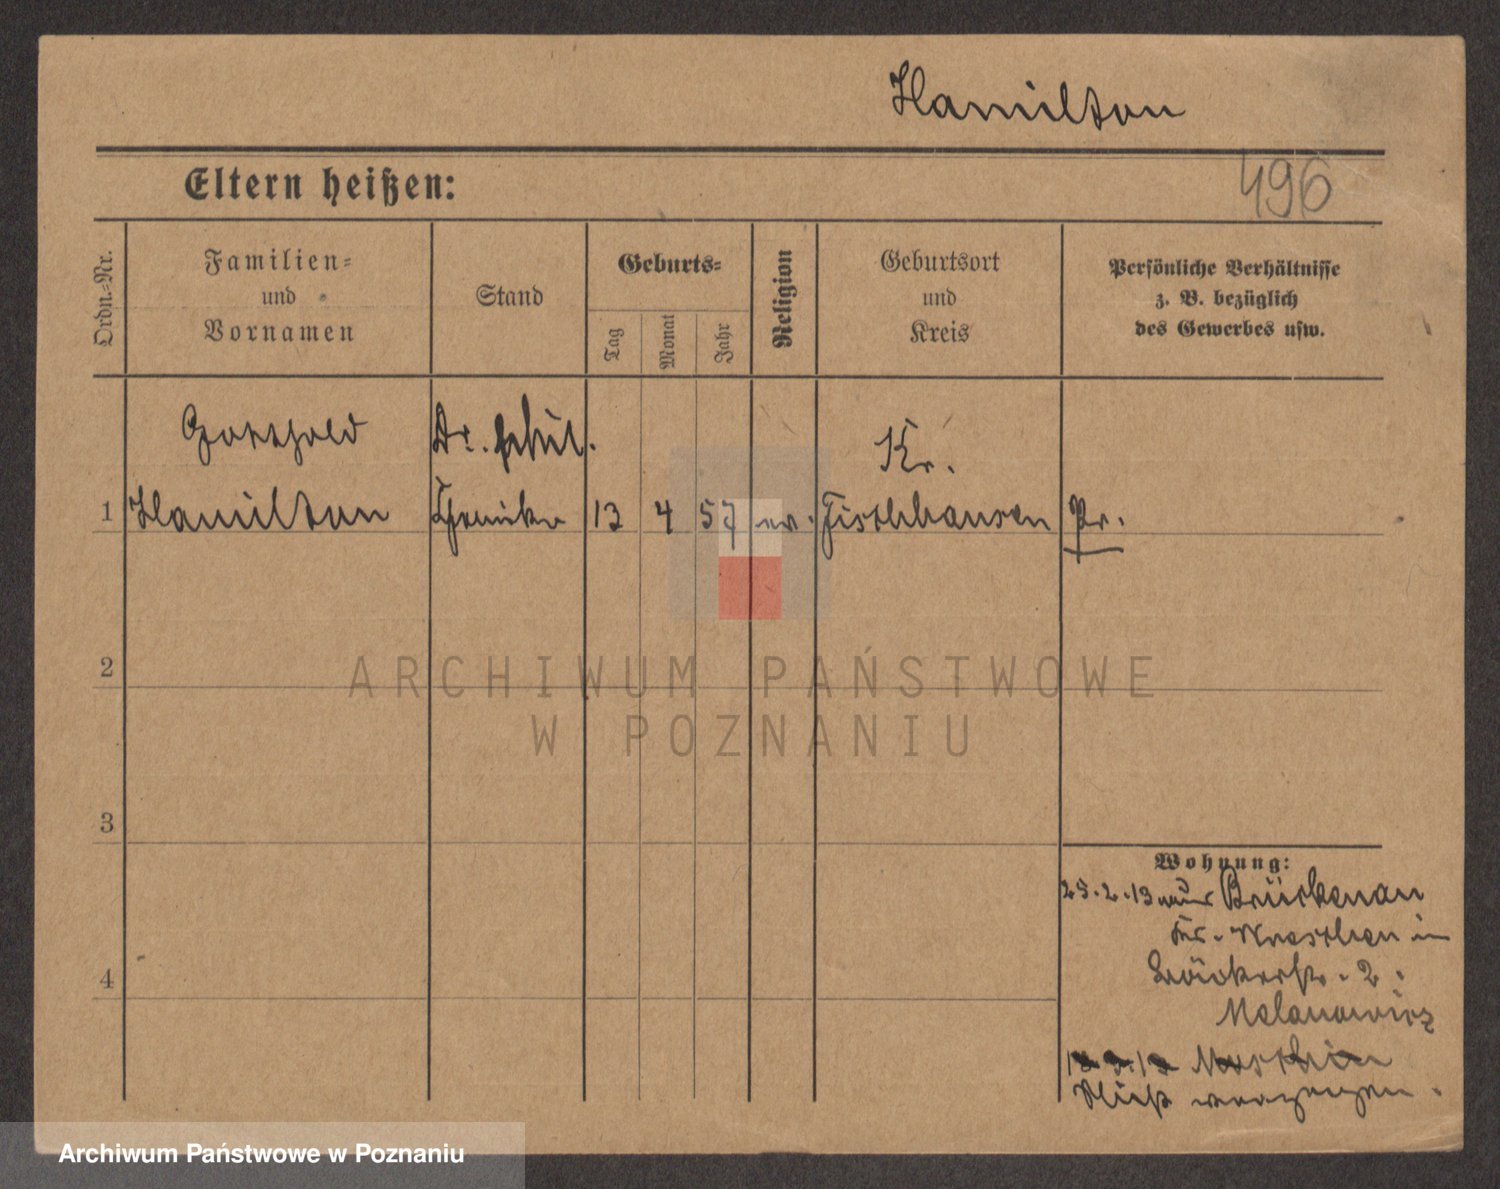 Hamilton
Eltern heißen:
496
Ordn.-Nr.
Familien-
und
Vornamen
Stand
Geburts-
Tag
Monat
Jahr
Religion
Geburtsort
und
Kreis
Persönliche Verhältnisse
z. B. bezüglich
des Gewerbes usw.
Gotthold
Dr. phil.
Kr.
1
Hamilton
Chemiker
13
4
57
ev.
Fischhausen
Pr.
2
ARCHIWUM PAŃSTWOWE
W POZNANIU
3
Wohnung:
25.2.13 Brückenau
Kr.
Bäckerstr. 2.
4
verzogen.
Archiwum Państwowe w Poznaniu